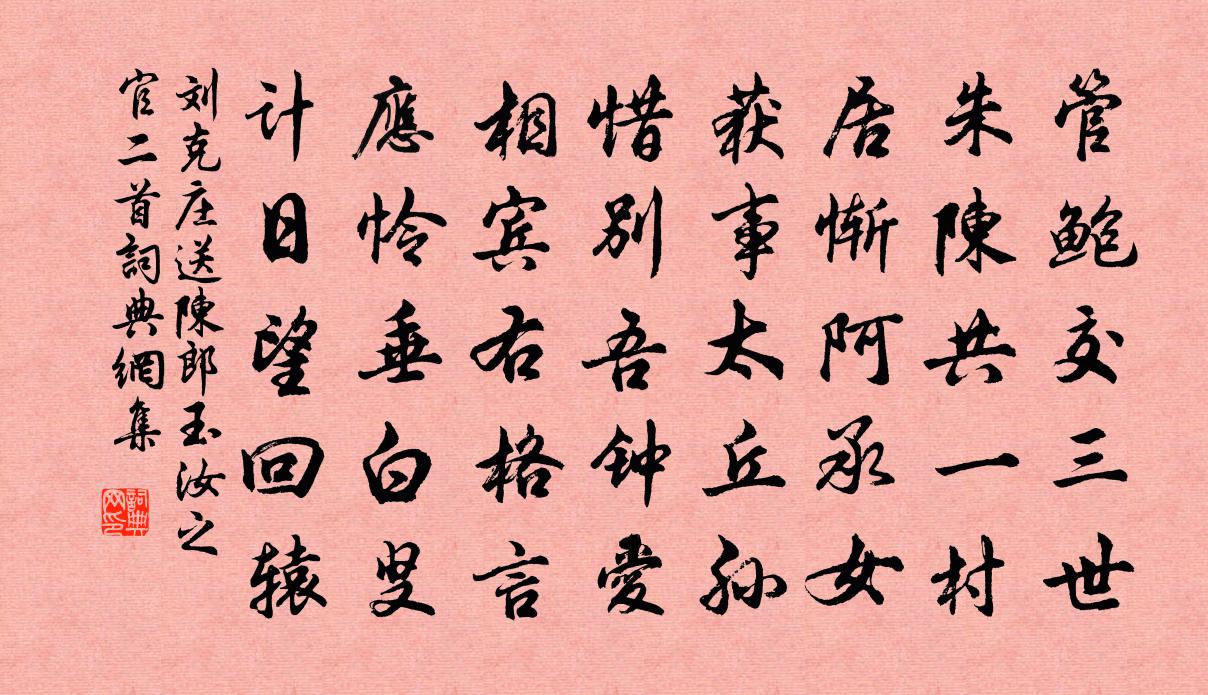 管鲍交三世
朱陳共一村
居惭阿承女
获事太丘孙
惜别吾钟愛
相宾右格言
應怜垂白叟
计日望回辕
刘克庄送陳郎玉汝之
官二首詞典網集
詞典網印